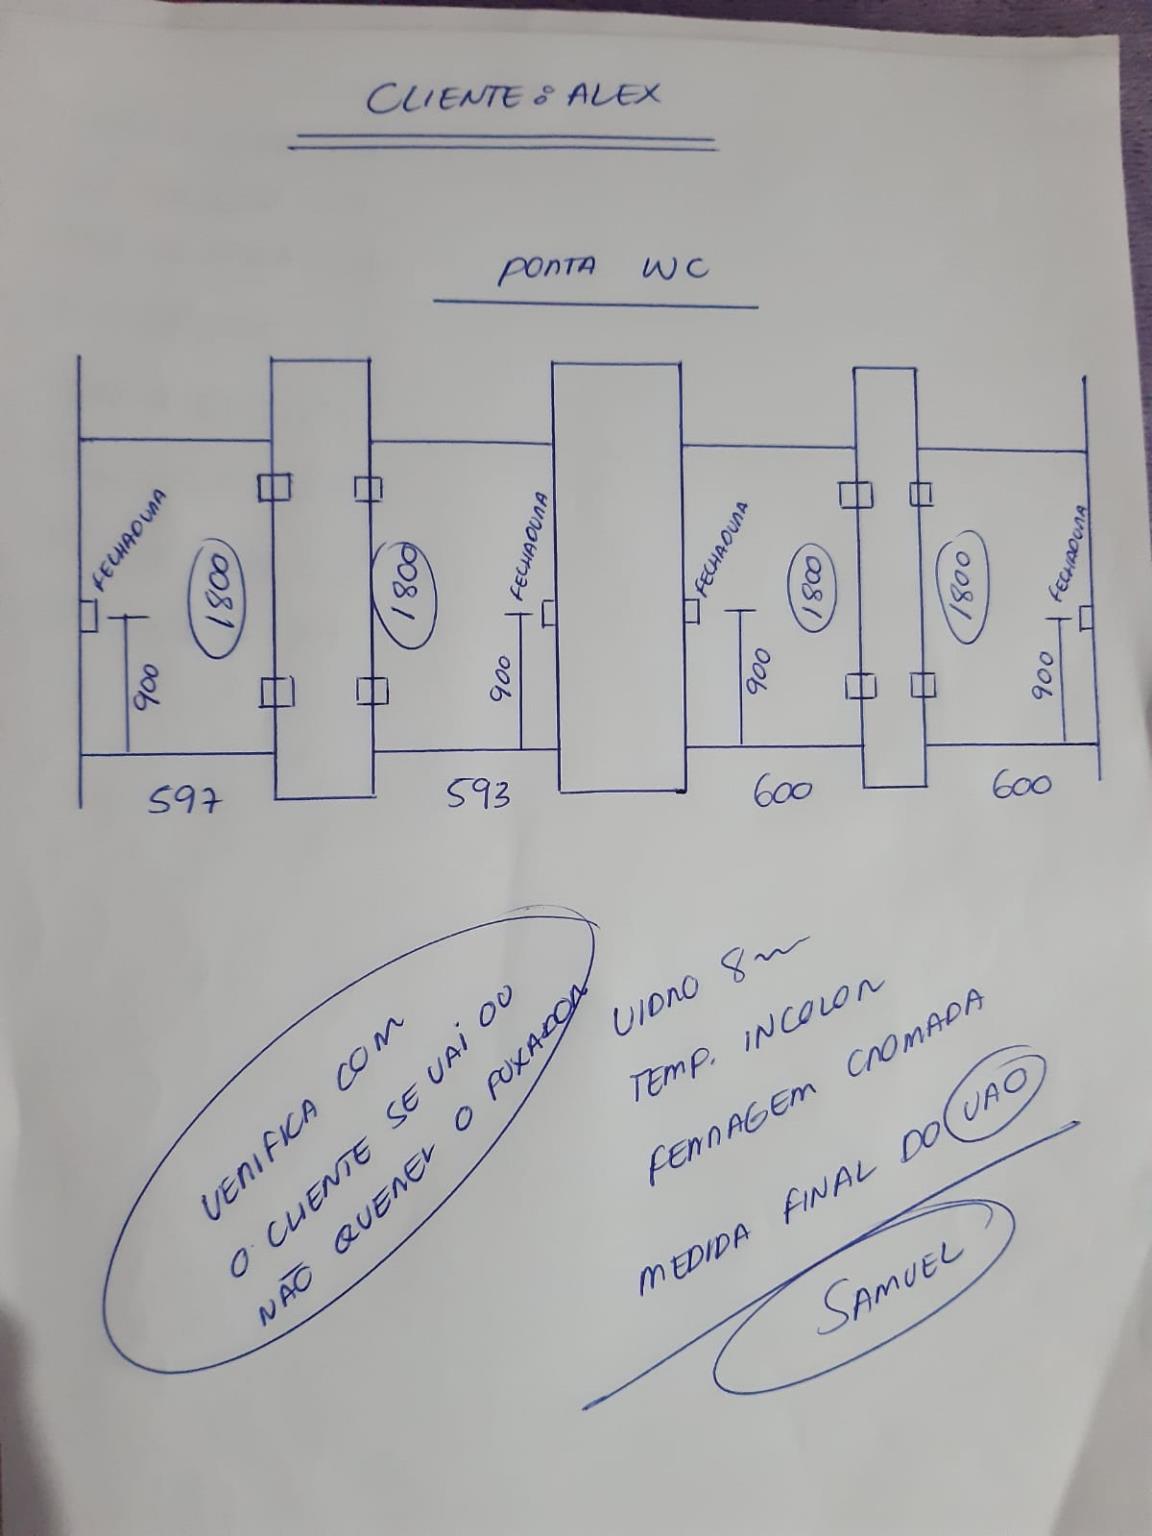 CLIENTE: ALEX
PORTA WC
FECHADURA
1800
900
597
1800
FECHADURA
900
593
FECHADURA
900
1800
600
1800
FECHADURA
900
600
VERIFICA COM
O CLIENTE SE VAI OU
NÃO QUERER O PUXADOR
VIDRO 8m
TEMP. INCOLOR
FERRAGEM CROMADA
MEDIDA FINAL DO VÃO
SAMUEL